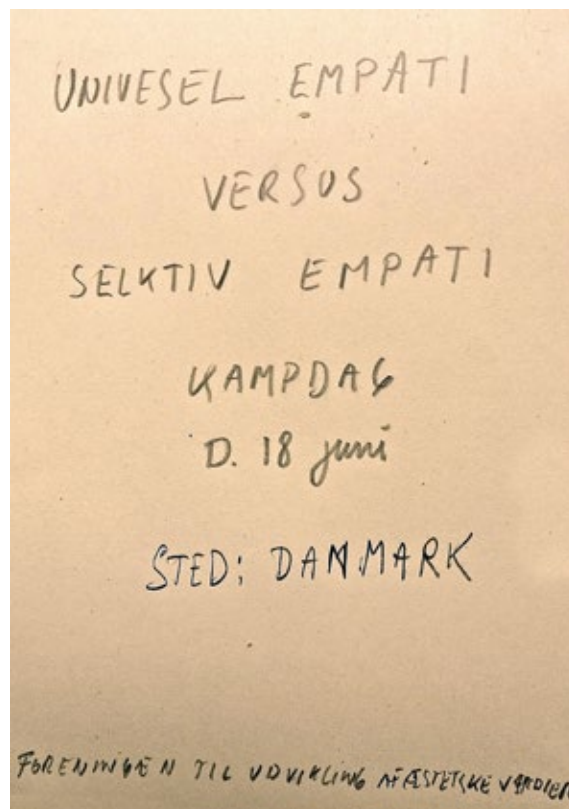 UNIVESEL EMPATI
VERSUS
SELKTIV EMPATI
KAMPDAG
D. 18 juni
STED: DANMARK
FORENINGEN TIL UDVIKLING AF ÆSTETISKE VÆRDIER